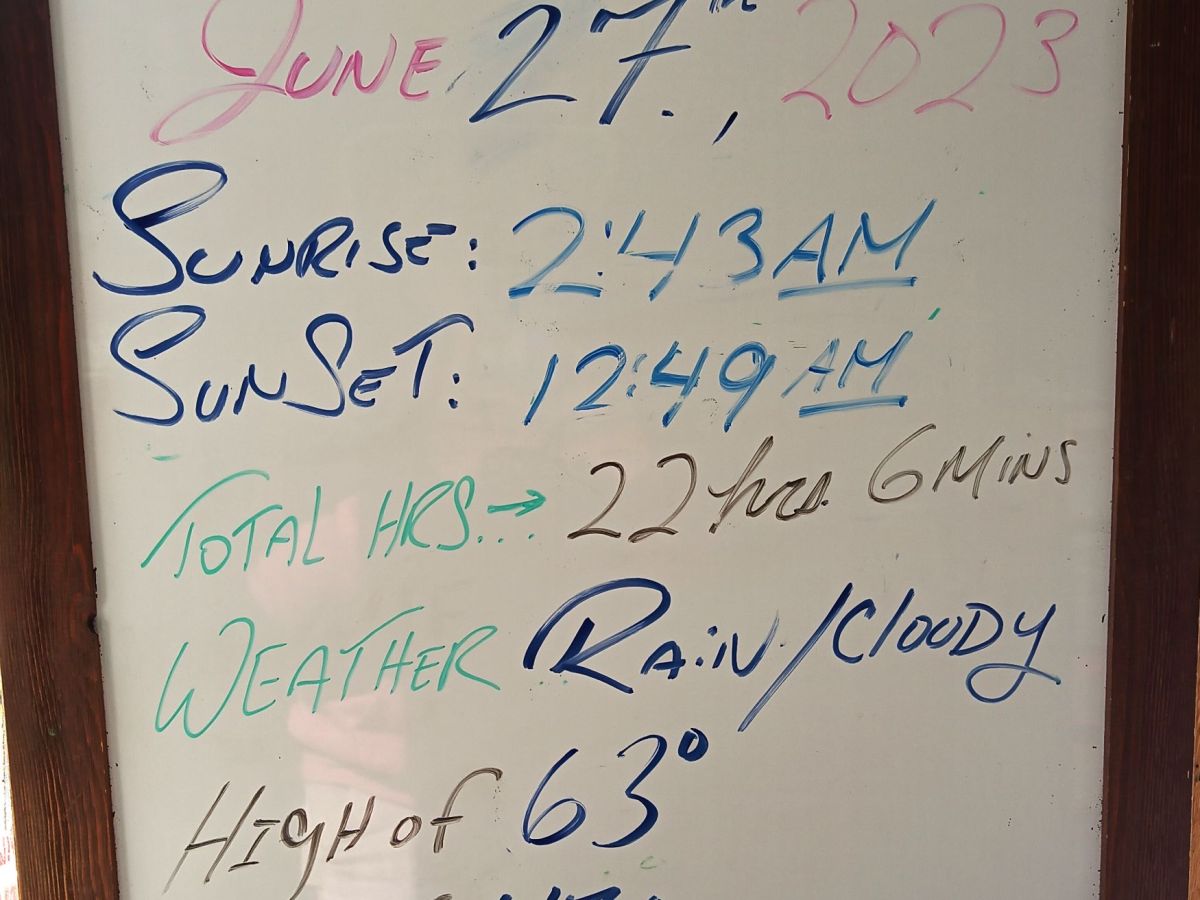 June 27th., 2023
Sunrise: 2:43 AM
Sunset: 12:49 AM
Total HRS...→ 22 hrs. 6 Mins
Weather Rain/Cloudy
High of 63°